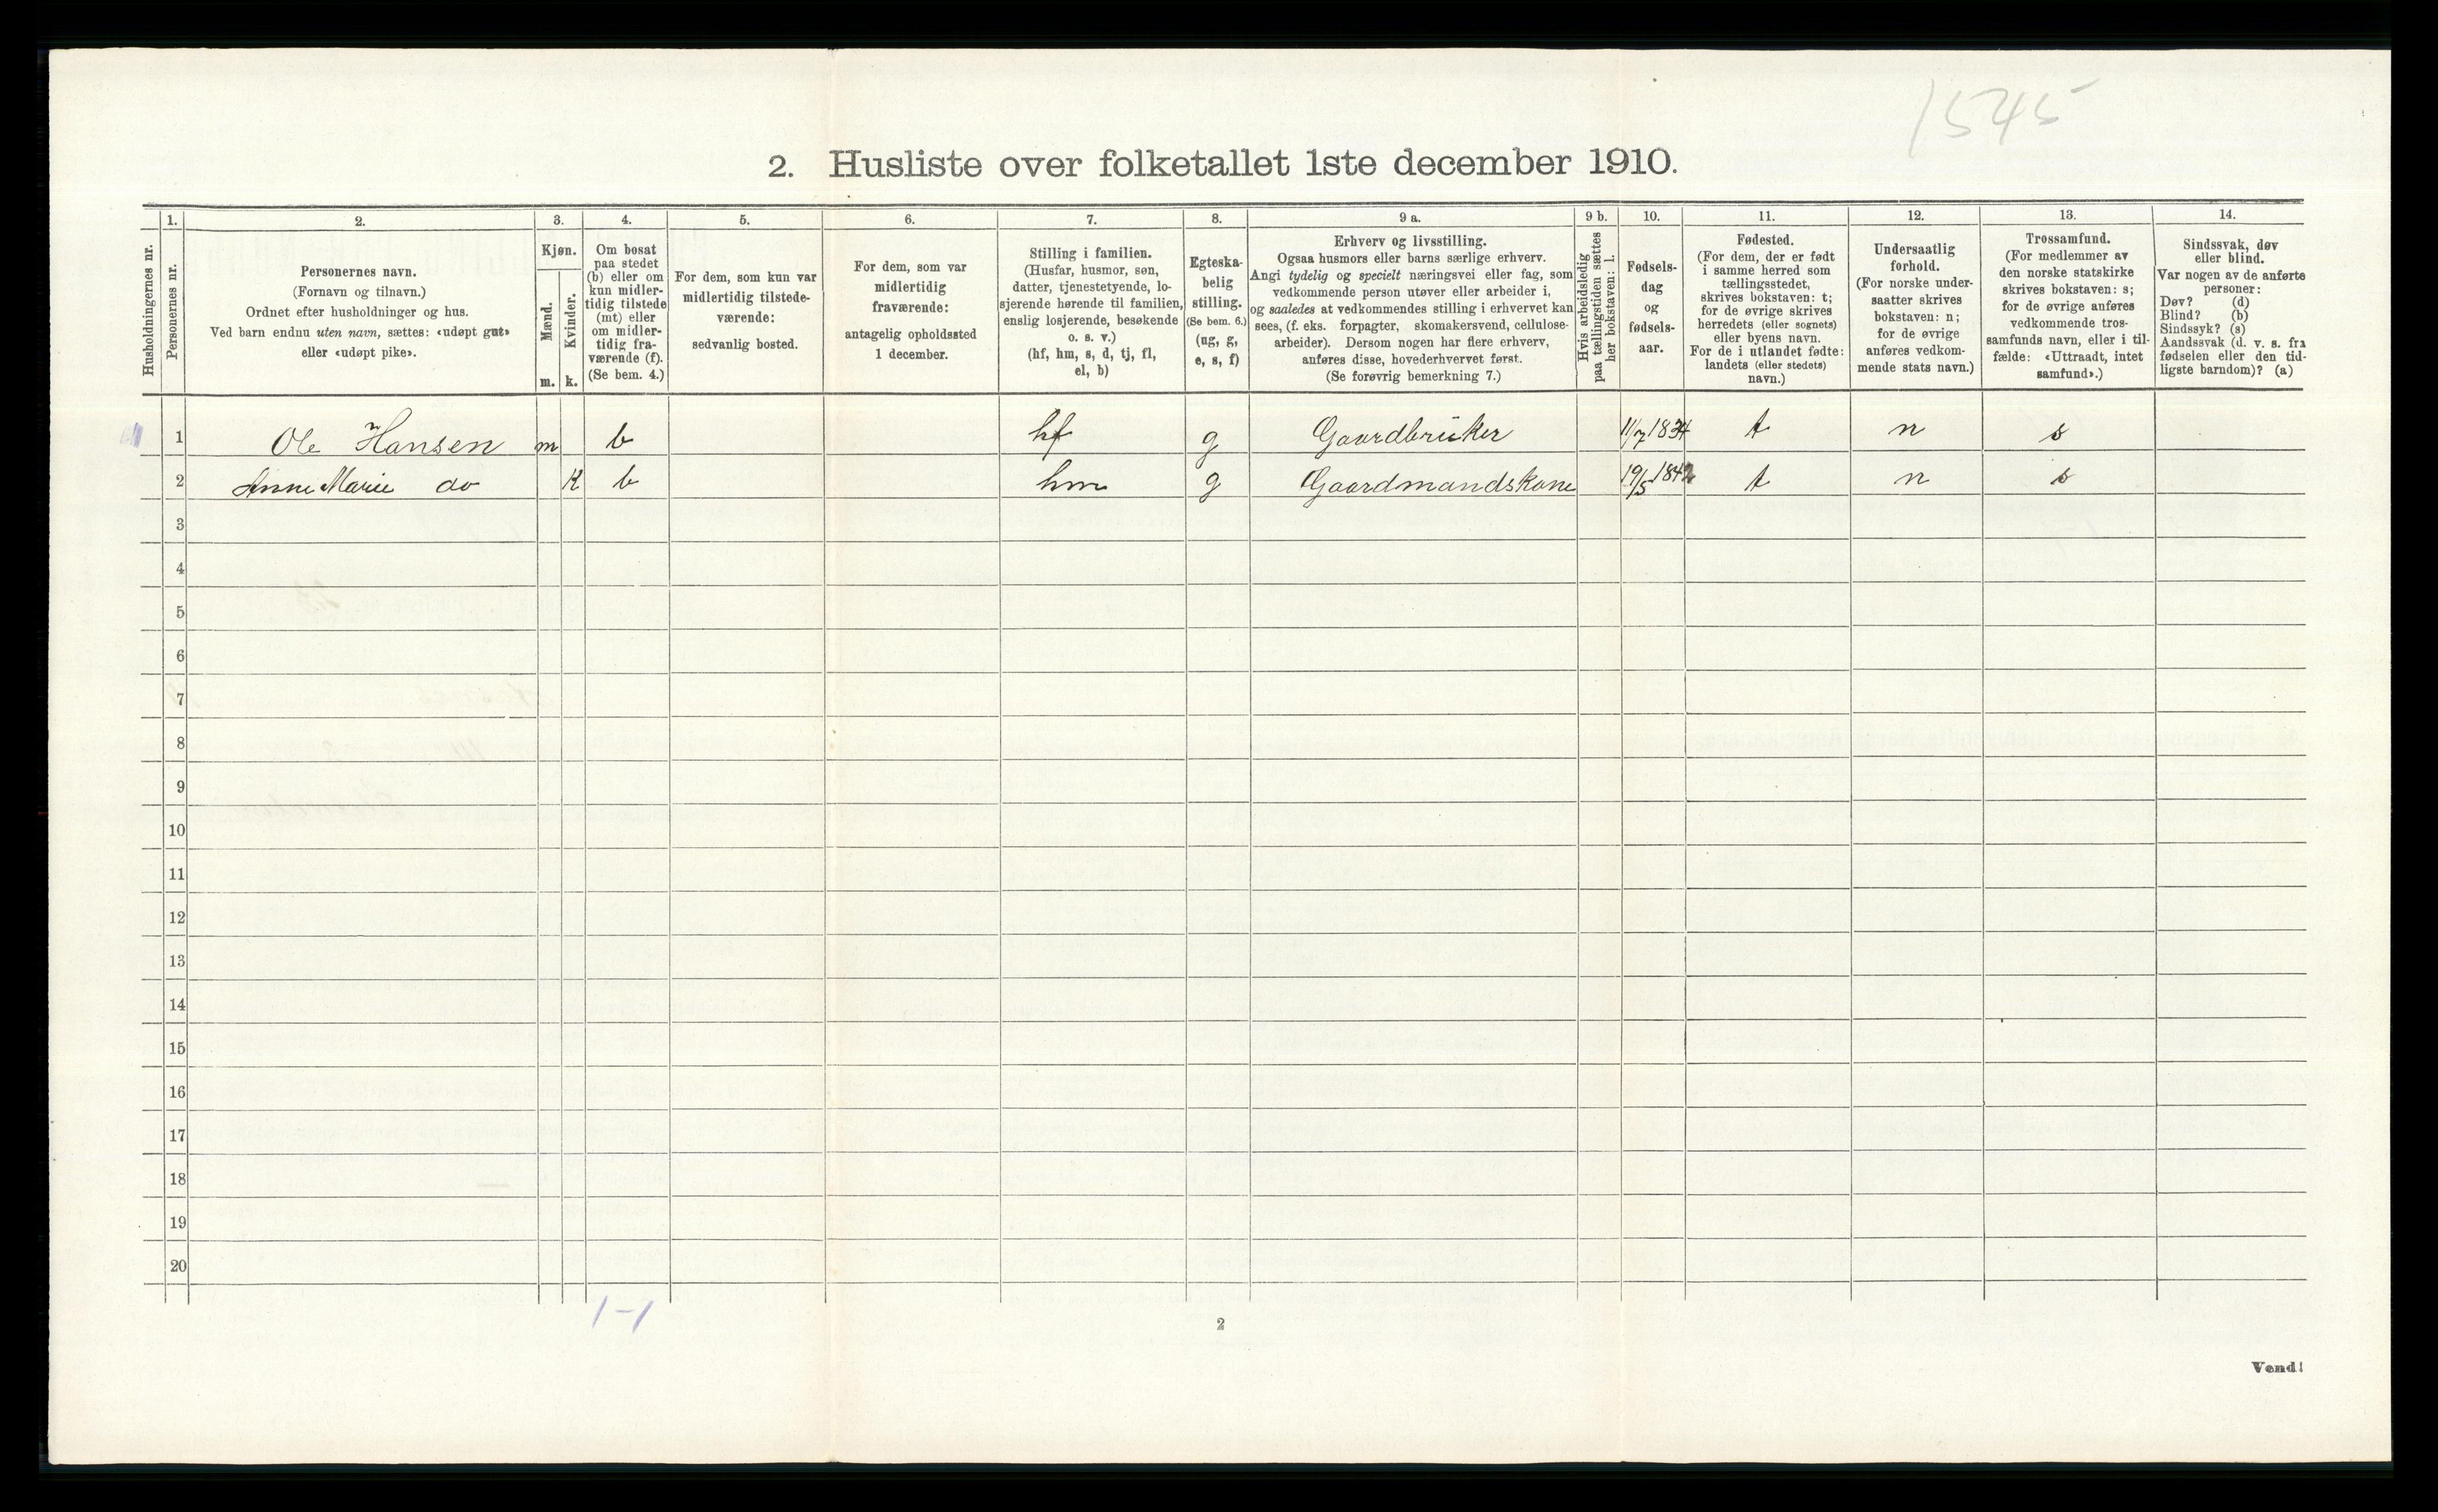 1545
2. Husliste over folketallet 1ste december 1910.
Husholdningernes nr.
1.
Personernes nr.
2.
Personernes navn.
(Fornavn og tilnavn.)
Ordnet efter husholdninger og hus.
Ved barn endnu uten navn, sættes: «udøpt gut»
eller «udøpt pike».
3.
Kjøn.
Mænd.
m.
Kvinder.
k.
4.
Om bosat
paa stedet
(b) eller om
kun midler-
tidig tilstede
(mt) eller
om midler-
tidig fra-
værende (f).
(Se bem. 4.)
5.
For dem, som kun var
midlertidig tilstede-
værende:
sedvanlig bosted.
6.
For dem, som var
midlertidig
fraværende:
antagelig opholdssted
1 december.
7.
Stilling i familien.
(Husfar, husmor, søn,
datter, tjenestetyende, lo-
sjerende hørende til familien,
enslig losjerende, besøkende
o. s. v.)
(hf, hm, s, d, tj, fl,
el, b)
8.
Egteska-
belig
stilling.
(Se bem. 6.)
(ug, g,
e, s, f)
9 a.
Erhverv og livsstilling.
Ogsaa husmors eller barns særlige erhverv.
Angi tydelig og specielt næringsvei eller fag, som
vedkommende person utøver eller arbeider i,
og saaledes at vedkommendes stilling i erhvervet kan
sees, (f. eks. forpagter, skomakersvend, cellulose-
arbeider). Dersom nogen har flere erhverv,
anføres disse, hovederhvervet først.
(Se forøvrig bemerkning 7.)
9 b.
Hvis arbeidsledig
paa tællingstiden sættes
her bokstaven: l.
10.
Fødsels-
dag
og
fødsels-
aar.
11.
Fødested.
(For dem, der er født
i samme herred som
tællingsstedet,
skrives bokstaven: t;
for de øvrige skrives
herredets (eller sognets)
eller byens navn.
For de i utlandet fødte:
landets (eller stedets)
navn.)
12.
Undersaatlig
forhold.
(For norske under-
saatter skrives
bokstaven: n;
for de øvrige
anføres vedkom-
mende stats navn.)
13.
Trossamfund.
(For medlemmer av
den norske statskirke
skrives bokstaven: s;
for de øvrige anføres
vedkommende tros-
samfunds navn, eller i til-
fælde: «Uttraadt, intet
samfund».)
14.
Sindssvak, døv
eller blind.
Var nogen av de anførte
personer:
Døv? (d)
Blind? (b)
Sindssyk? (s)
Aandssvak (d. v. s. fra
fødselen eller den tid-
ligste barndom)? (a)
1 Ole Hansen m b hf g Gaardbrüker 11/7 1834 t n s
2 Anne Marie do K b hm g Gaardmandskone 19/5 1842 t n s
3
4
5
6
7
8
9
10
11
12
13
14
15
16
17
18
19
20
1-1
2
Vend!